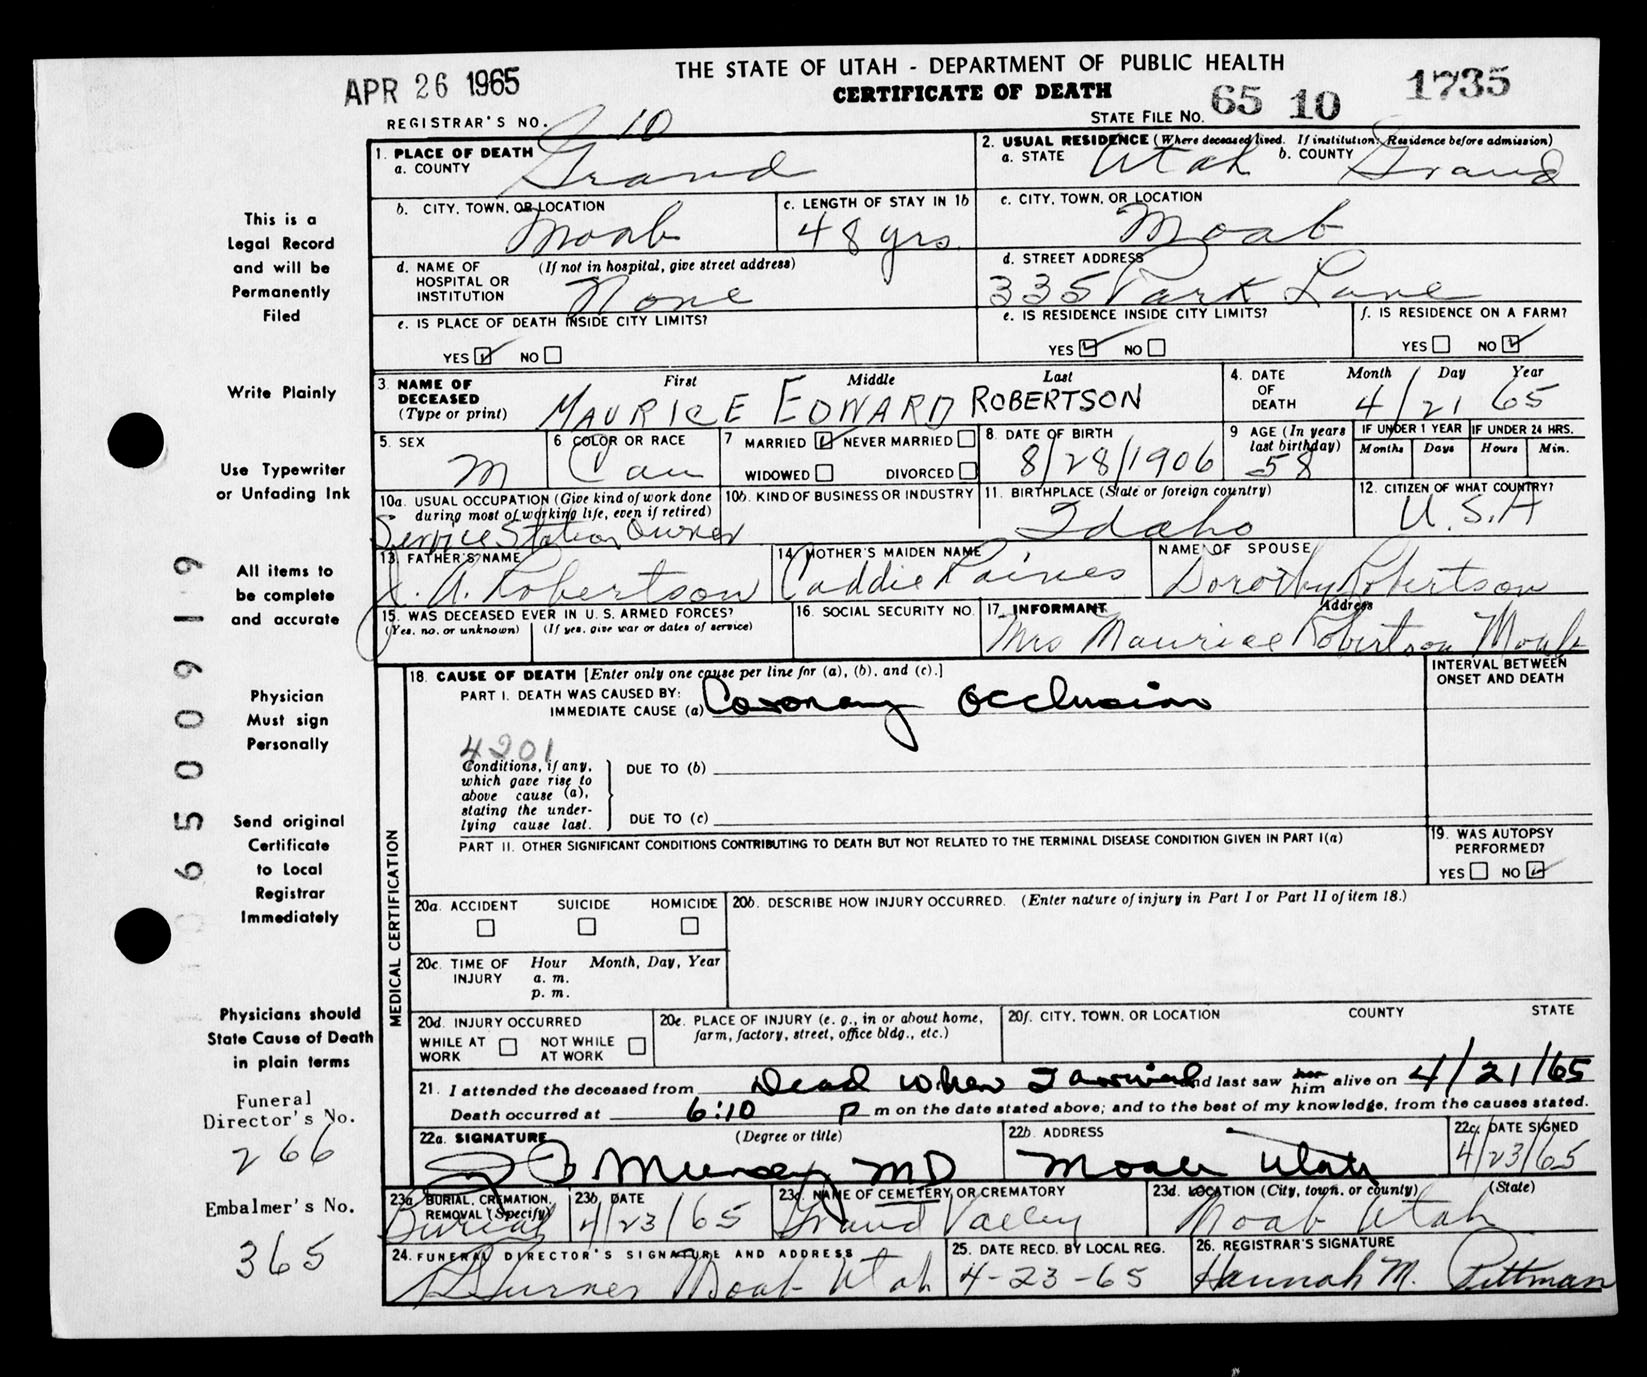 APR 26 1965
THE STATE OF UTAH - DEPARTMENT OF PUBLIC HEALTH
CERTIFICATE OF DEATH
STATE FILE NO. 65 10 1735
REGISTRAR'S NO. 10
This is a
Legal Record
and will be
Permanently
Filed
Write Plainly
Use Typewriter
or Unfading Ink
All items to
be complete
and accurate
Physician
Must sign
Personally
Send original
Certificate
to Local
Registrar
Immediately
Physicians should
State Cause of Death
in plain terms
Funeral
Director's No.
266
Embalmer's No.
365
6500919
1. PLACE OF DEATH
a. COUNTY Grand
2. USUAL RESIDENCE (Where deceased lived. If institution: Residence before admission)
a. STATE Utah b. COUNTY Grand
b. CITY, TOWN, OR LOCATION Moab
c. LENGTH OF STAY IN 1b 48 yrs.
c. CITY, TOWN, OR LOCATION Moab
d. NAME OF HOSPITAL OR INSTITUTION (If not in hospital, give street address) None
d. STREET ADDRESS 335 Park Lane
e. IS PLACE OF DEATH INSIDE CITY LIMITS?
YES NO
e. IS RESIDENCE INSIDE CITY LIMITS?
YES NO
f. IS RESIDENCE ON A FARM?
YES NO
3. NAME OF DECEASED (Type or print)
First Middle Last
MAURICE EDWARD ROBERTSON
4. DATE OF DEATH
Month Day Year
4/21 65
5. SEX M
6 COLOR OR RACE Cau
7 MARRIED NEVER MARRIED
WIDOWED DIVORCED
8. DATE OF BIRTH 8/28/1906
9 AGE (In years last birthday) 58
IF UNDER 1 YEAR
Months Days
IF UNDER 24 HRS.
Hours Min.
10a. USUAL OCCUPATION (Give kind of work done during most of working life, even if retired)
Service Station Owner
10b. KIND OF BUSINESS OR INDUSTRY
11. BIRTHPLACE (State or foreign country) Idaho
12. CITIZEN OF WHAT COUNTRY? U.S.A
13. FATHER'S NAME A. Robertson
14. MOTHER'S MAIDEN NAME Caddie Raines
NAME OF SPOUSE Dorothy Robertson
15. WAS DECEASED EVER IN U. S. ARMED FORCES?
(Yes, no, or unknown) (If yes, give war or dates of service)
16. SOCIAL SECURITY NO.
17. INFORMANT Address
Mrs Maurice Robertson Moab
18. CAUSE OF DEATH [Enter only one cause per line for (a), (b), and (c).]
INTERVAL BETWEEN
ONSET AND DEATH
PART I. DEATH WAS CAUSED BY:
IMMEDIATE CAUSE (a) Coronary Occlusion
4201
Conditions, if any,
which gave rise to
above cause (a),
stating the under-
lying cause last.
DUE TO (b)
DUE TO (c)
PART II. OTHER SIGNIFICANT CONDITIONS CONTRIBUTING TO DEATH BUT NOT RELATED TO THE TERMINAL DISEASE CONDITION GIVEN IN PART I(a)
19. WAS AUTOPSY
PERFORMED?
YES NO
MEDICAL CERTIFICATION
20a. ACCIDENT SUICIDE HOMICIDE
20b. DESCRIBE HOW INJURY OCCURRED. (Enter nature of injury in Part I or Part II of item 18.)
20c. TIME OF INJURY
Hour Month, Day, Year
a. m.
p. m.
20d. INJURY OCCURRED
WHILE AT WORK NOT WHILE AT WORK
20e. PLACE OF INJURY (e. g., in or about home, farm, factory, street, office bldg., etc.)
20f. CITY, TOWN, OR LOCATION COUNTY STATE
21. I attended the deceased from Dead when I arrived and last saw her him alive on 4/21/65
Death occurred at 6:10 P m on the date stated above; and to the best of my knowledge, from the causes stated.
22a. SIGNATURE (Degree or title)
Munsey MD
22b. ADDRESS Moab Utah
22c. DATE SIGNED 4/23/65
23a. BURIAL, CREMATION, REMOVAL (Specify) Burial
23b. DATE 4/23/65
23c. NAME OF CEMETERY OR CREMATORY Grand Valley
23d. LOCATION (City, town, or county) (State)
Moab Utah
24. FUNERAL DIRECTOR'S SIGNATURE AND ADDRESS
Turner Moab Utah
25. DATE RECD. BY LOCAL REG. 4-23-65
26. REGISTRAR'S SIGNATURE Hannah M. Pittman